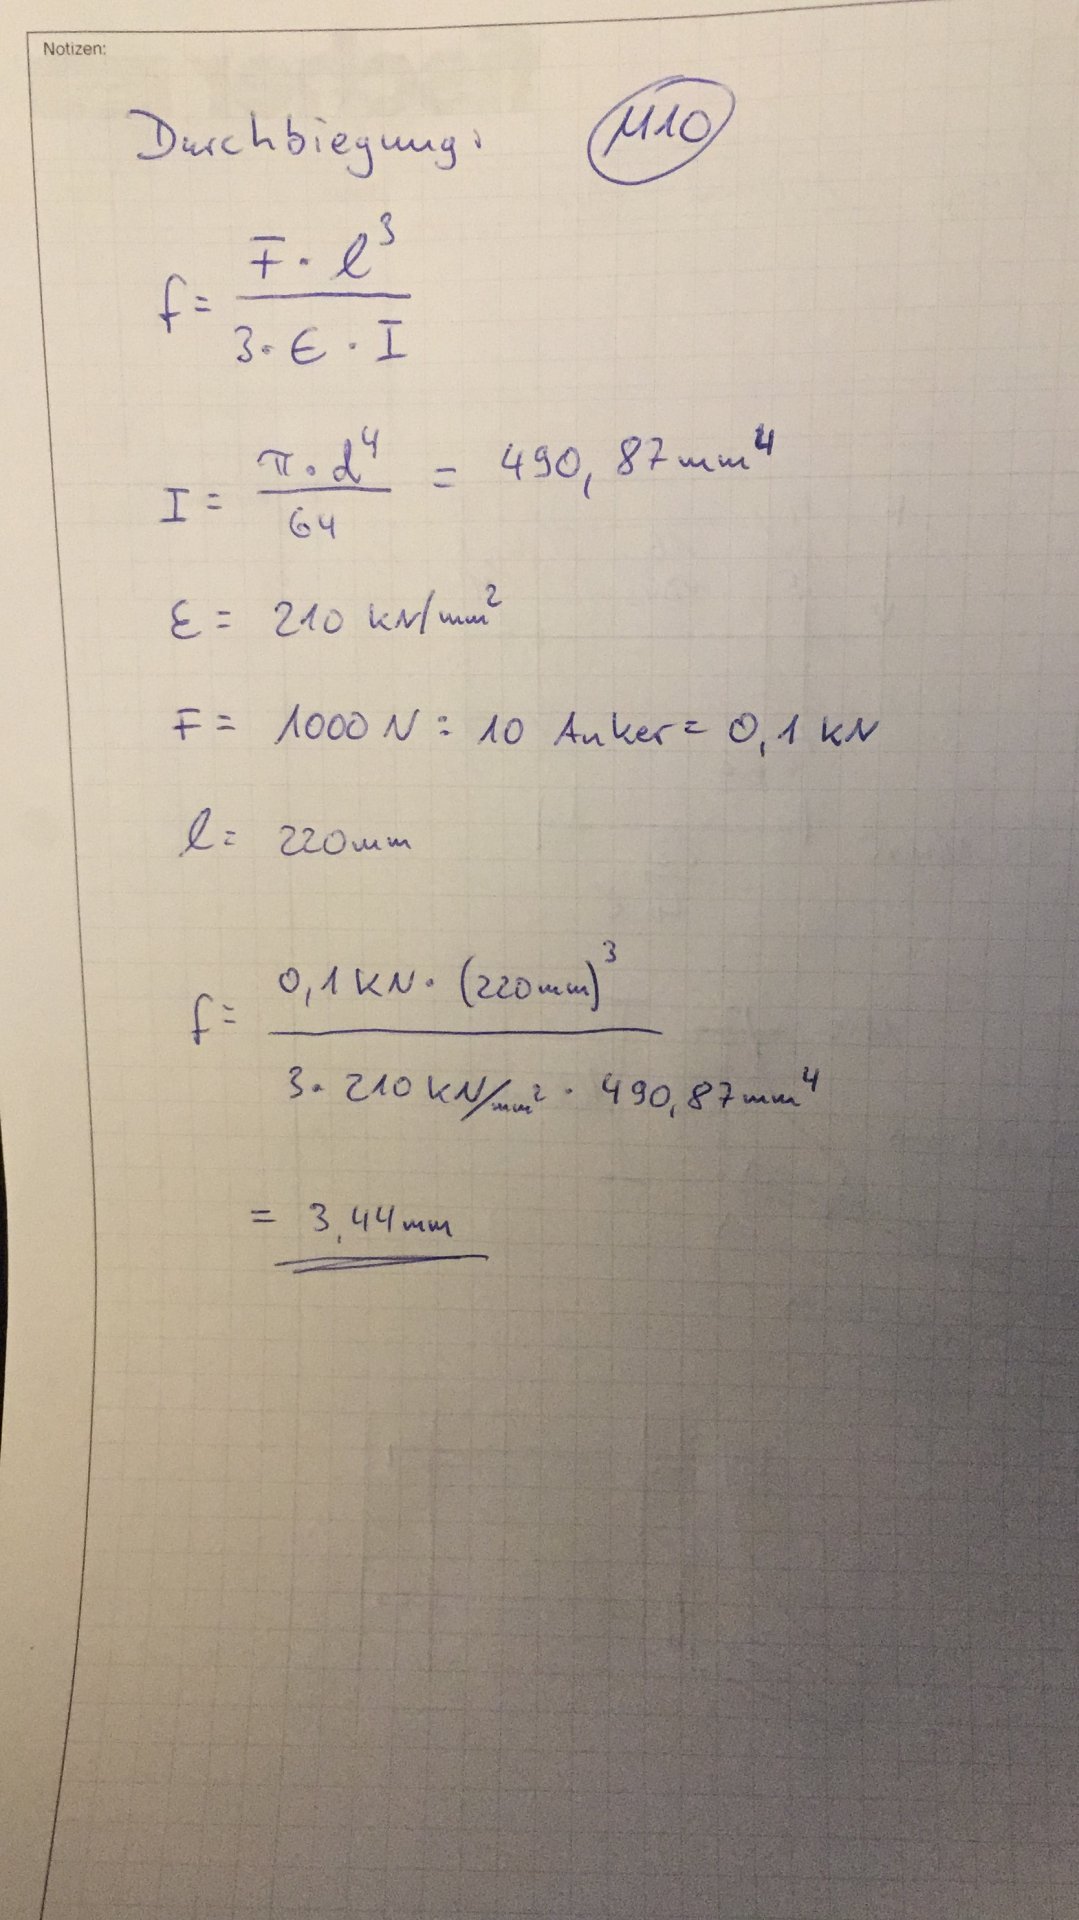 Notizen:
Durchbiegung: M10
f = F · l³ / 3 · E · I
I = π · d⁴ / 64 = 490,87 mm⁴
E = 210 kN/mm²
F = 1000 N : 10 Anker = 0,1 kN
l = 220mm
f = 0,1 kN · (220mm)³ / 3 · 210 kN/mm² · 490,87mm⁴
= 3,44mm